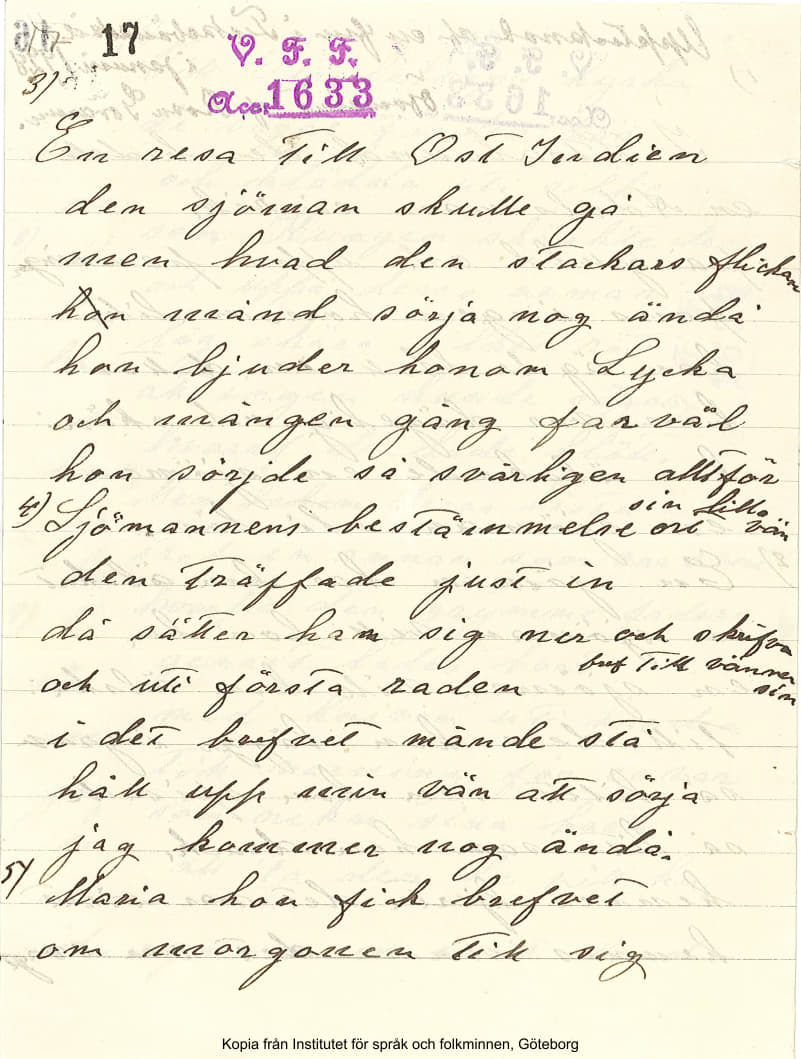 17
V. F. F.
Acc. 1633
3)
En resa till Ost Indien
den sjöman skulle gå
men hvad den stackars flickan
hon månd sörja nog ändå
hon bjuder honom Lycka
och mången gång farväl
hon sörjde så svårligen alltför
sin lilla vän
4) Sjömannens bestämmelse ort
den träffade just in
då sätter ham sig ner och skrifva
bref till vännen sin
och uti första raden
i det brefvet månde stå
håll upp min vän att sörja
jag kommer nog ändå.
5) Maria hon fick brefvet
om morgonen till sig
Kopia från Institutet för språk och folkminnen, Göteborg